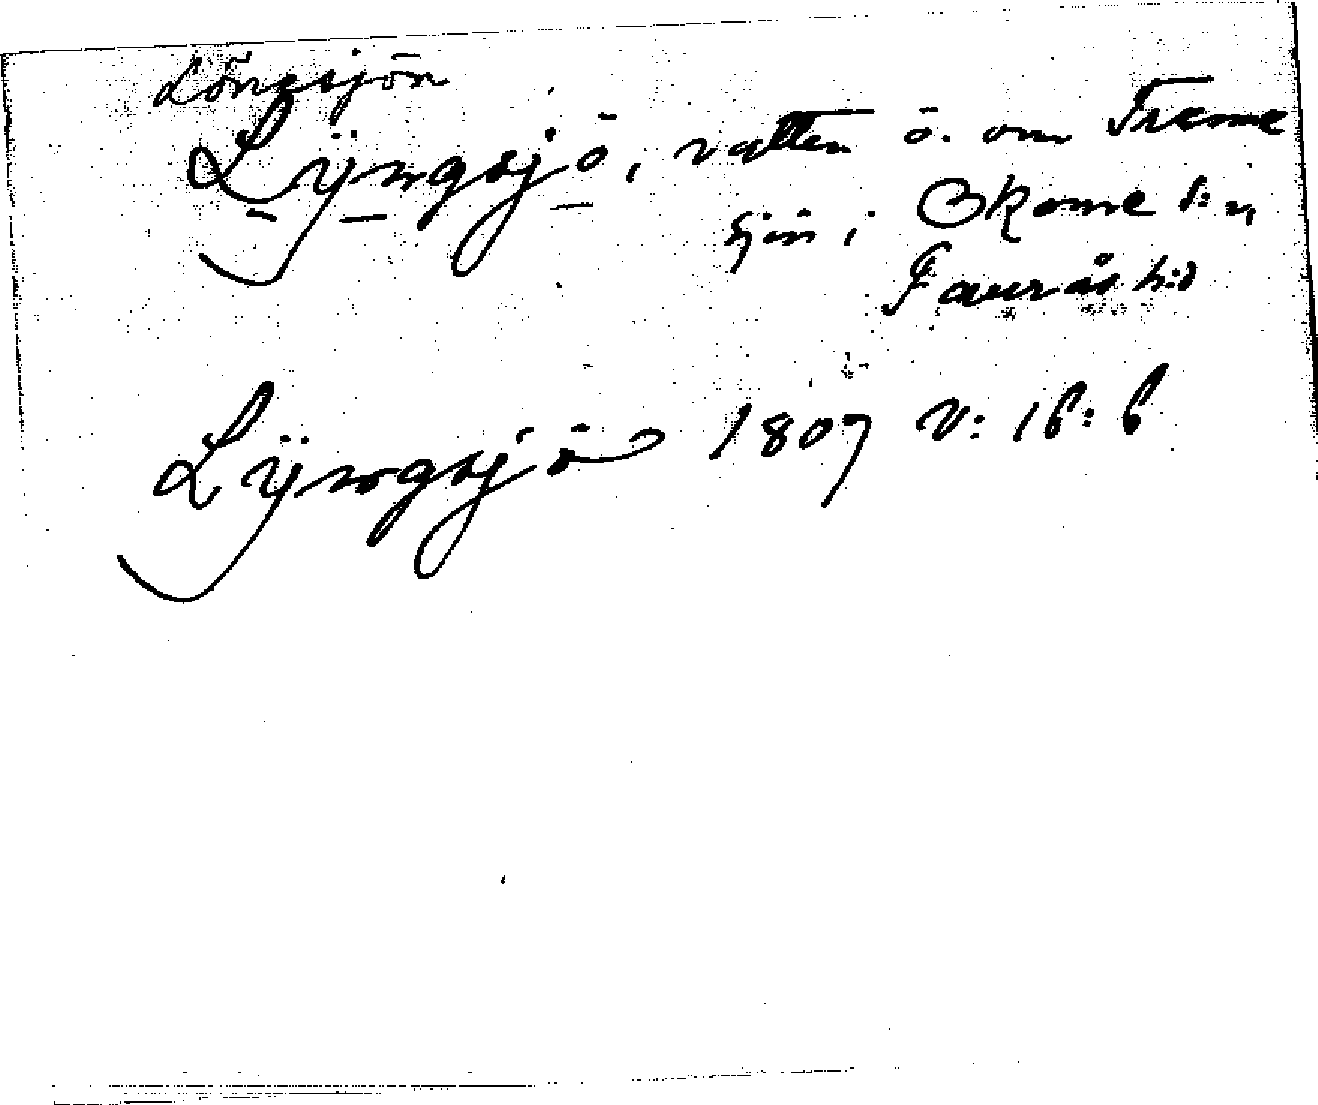 Löngsjön
Lÿngsjö, vatten ö. om Treme
sjön i Okome s:n,
Faurås h:d
Lÿngsjö 1807 V: 16: 6